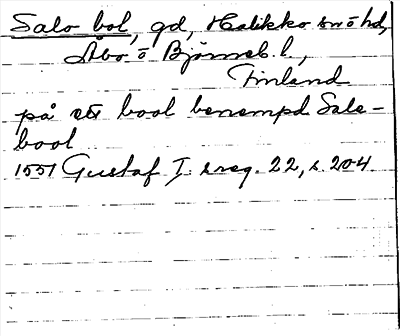 Salo bol, gd, Halikko snöhd,
Åbo o Björneb. l.,
Finland
på ett bool benempd Sale-
bool
1551 Gustaf I. s reg. 22, s. 204.